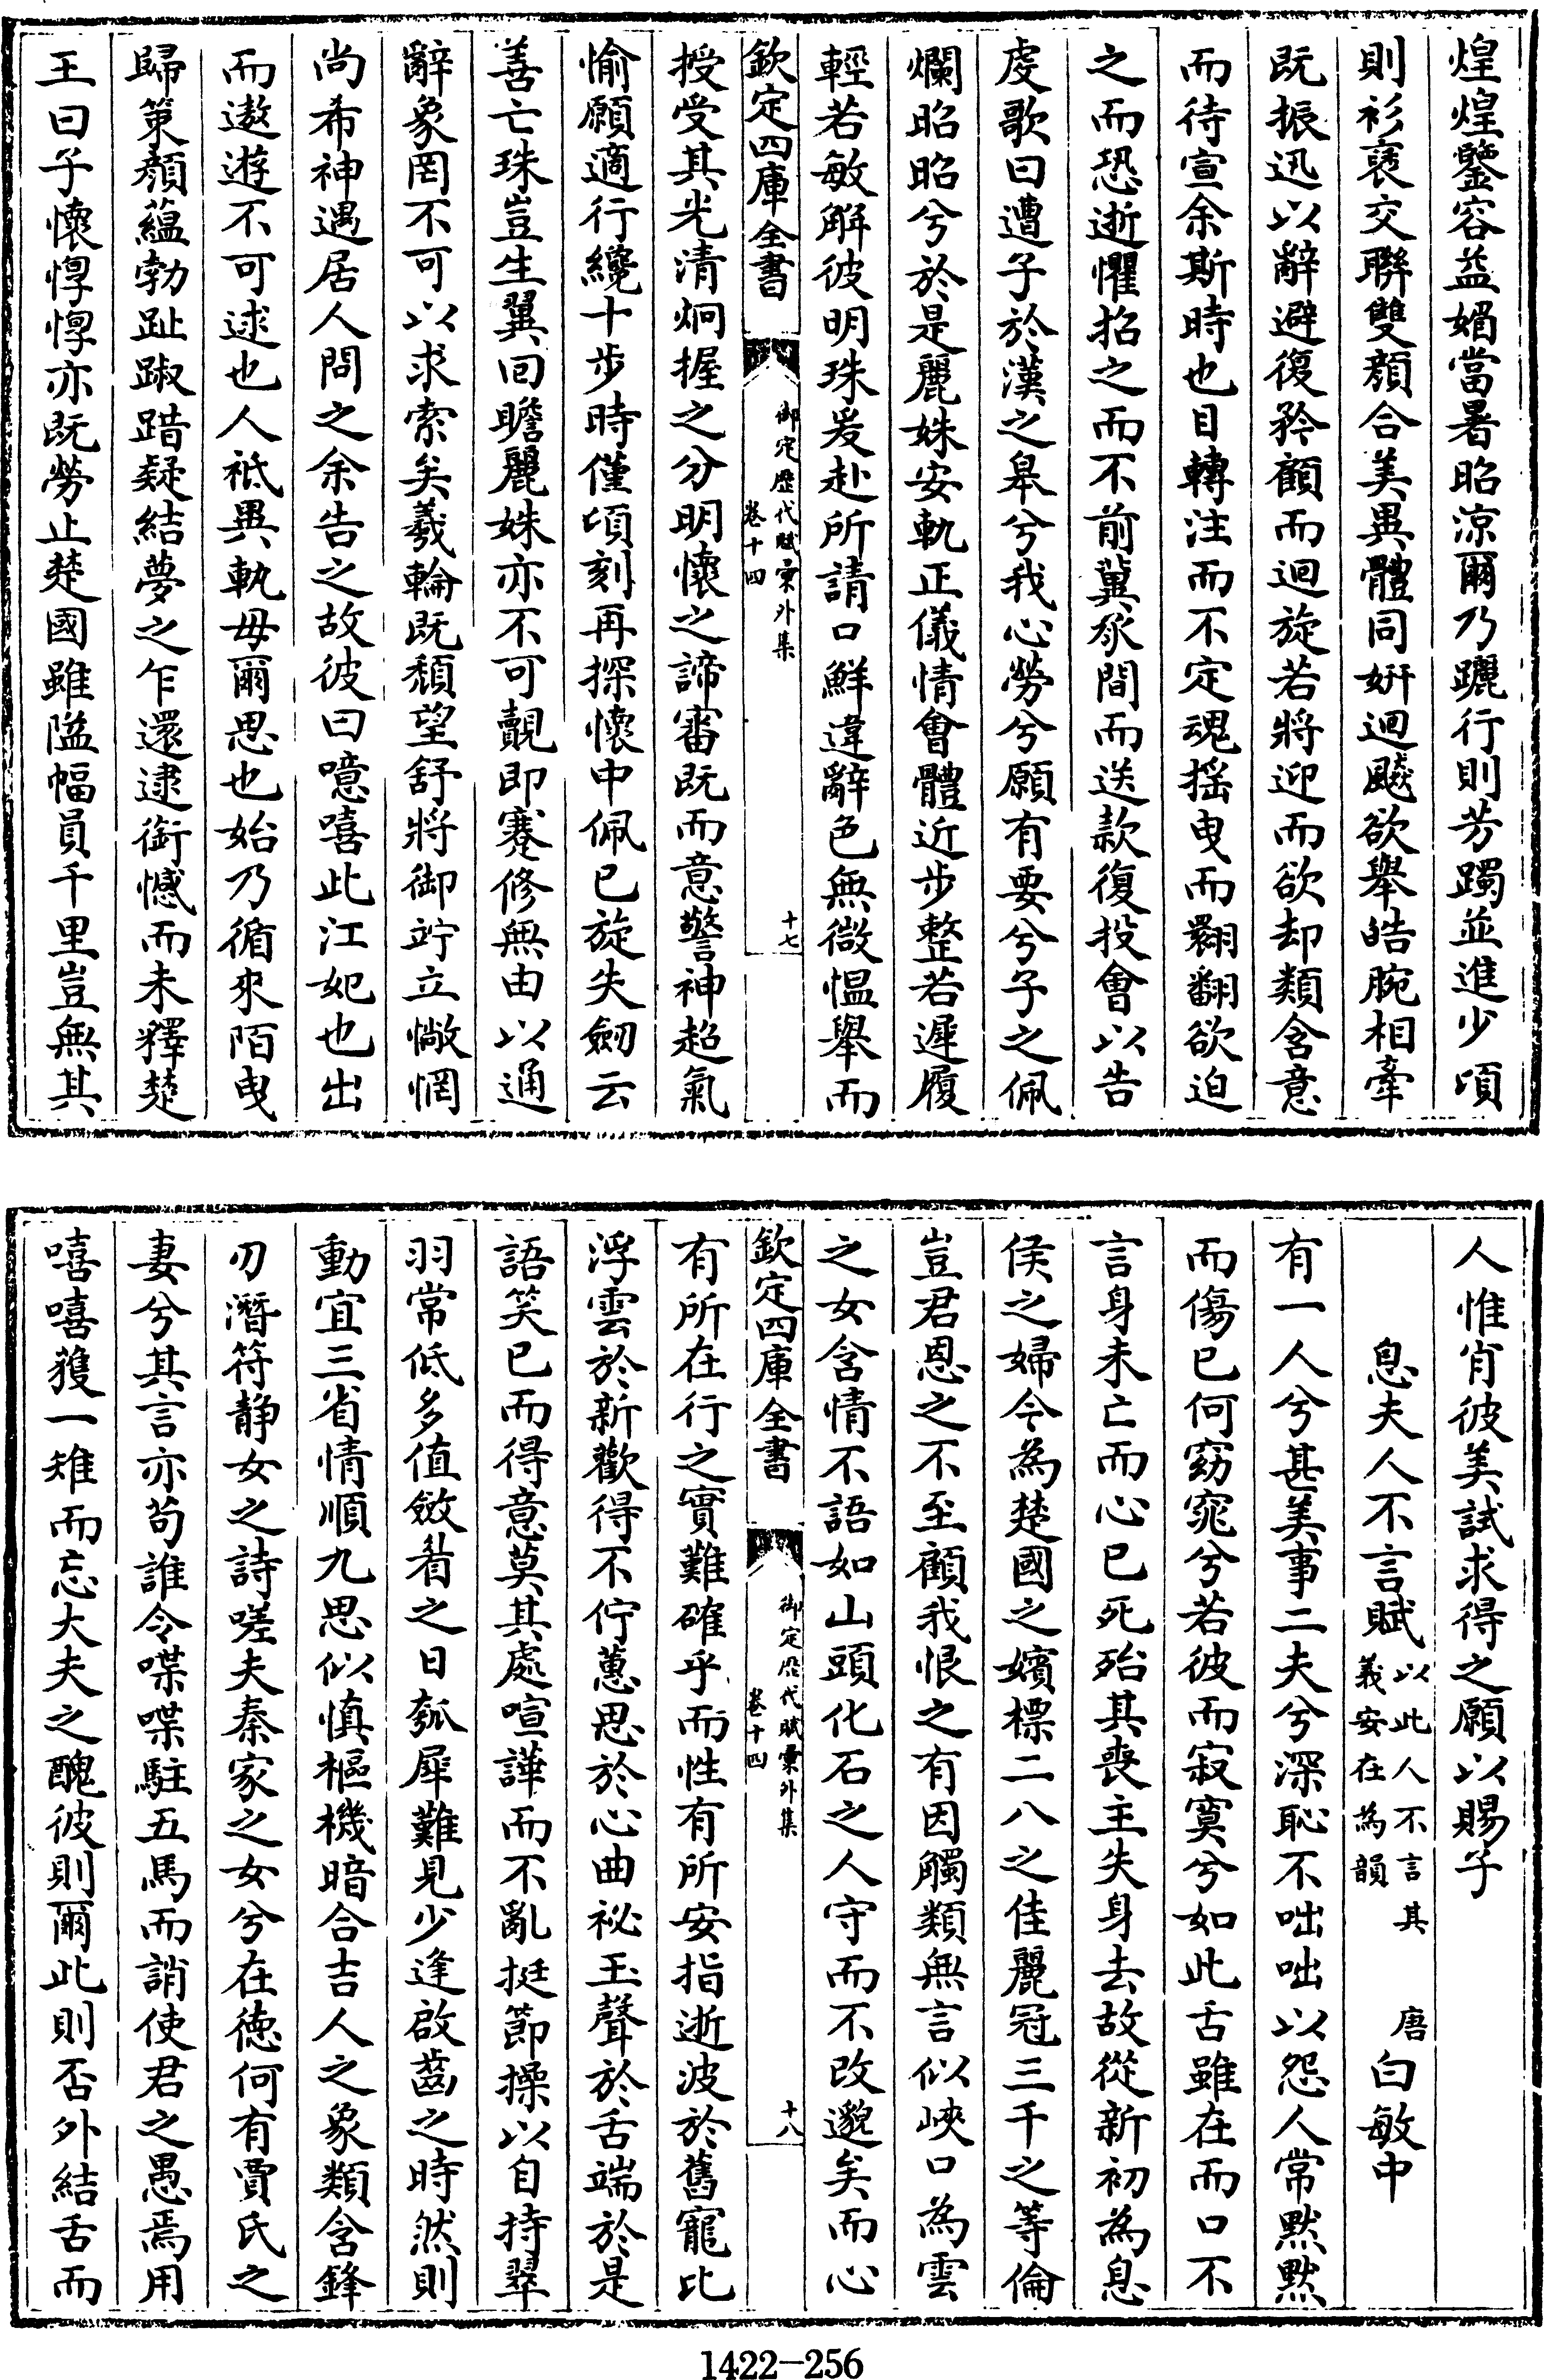 煌煌鑒容益媚當暑昭涼爾乃躧行則芳躅並進少頃
則衫裦交聯雙顏合美異體同妍迴飈欲舉皓腕相牽
既振迅以辭避復矜顧而迴旋若將迎而欲却類含意
而待宣余斯時也目轉注而不定魂揺曳而翾翻欲迫
之而恐逝懼招之而不前冀承間而送款復投會以告
虔歌曰遭子於漢之皋兮我心勞兮願有要兮子之佩
爛昭昭兮於是麗姝安軌正儀情會體近步整若遲履
輕若敏解彼明珠爰赴所請口鮮違辭色無微愠舉而
欽定四庫全書
御定歴代賦彙外集
卷十四
十七
授受其光清炯握之分明懷之諦審既而意警神超氣
愉願適行纔十步時僅頃刻再探懷中佩已旋失劒云
善亡珠豈生翼回瞻麗姝亦不可覿即蹇修無由以通
辭象罔不可以求索矣羲輪既頽望舒將御竚立惝惘
尚希神遇居人問之余告之故彼曰噫嘻此江妃也出
而遨遊不可逑也人祗異軌毋爾思也始乃循來陌曳
歸策顏蘊勃趾踧踖疑結夢之乍還逮銜憾而未釋楚
王曰子懷惸惸亦既勞止楚國雖隘幅員千里豈無其
人惟肖彼美試求得之願以賜子
息夫人不言賦
以此人不言其
義安在為韻
唐
白敏中
有一人兮甚美事二夫兮深恥不咄咄以怨人常黙黙
而傷已何窈窕兮若彼而寂寞兮如此舌雖在而口不
言身未亡而心已死殆其喪主失身去故從新初為息
侯之婦今為楚國之嬪標二八之佳麗冠三千之等倫
豈君恩之不至顧我恨之有因觸類無言似峽口為雲
之女含情不語如山頭化石之人守而不改邈矣而心
欽定四庫全書
御定歴代賦彙外集
卷十四
十八
有所在行之實難確乎而性有所安指逝波於舊寵比
浮雲於新歡得不佇蕙思於心曲祕玉聲於舌端於是
語笑已而得意莫其處喧譁而不亂挺節操以自持翠
羽常低多值斂眉之日瓠犀難見少逢啟齒之時然則
動宜三省情順九思似慎樞機暗合吉人之象類含鋒
刃潛符静女之詩嗟夫秦家之女兮在德何有賈氏之
妻兮其言亦苟誰令喋喋駐五馬而誚使君之愚焉用
嘻嘻獲一雉而忘大夫之醜彼則爾此則否外結舌而
1422-256